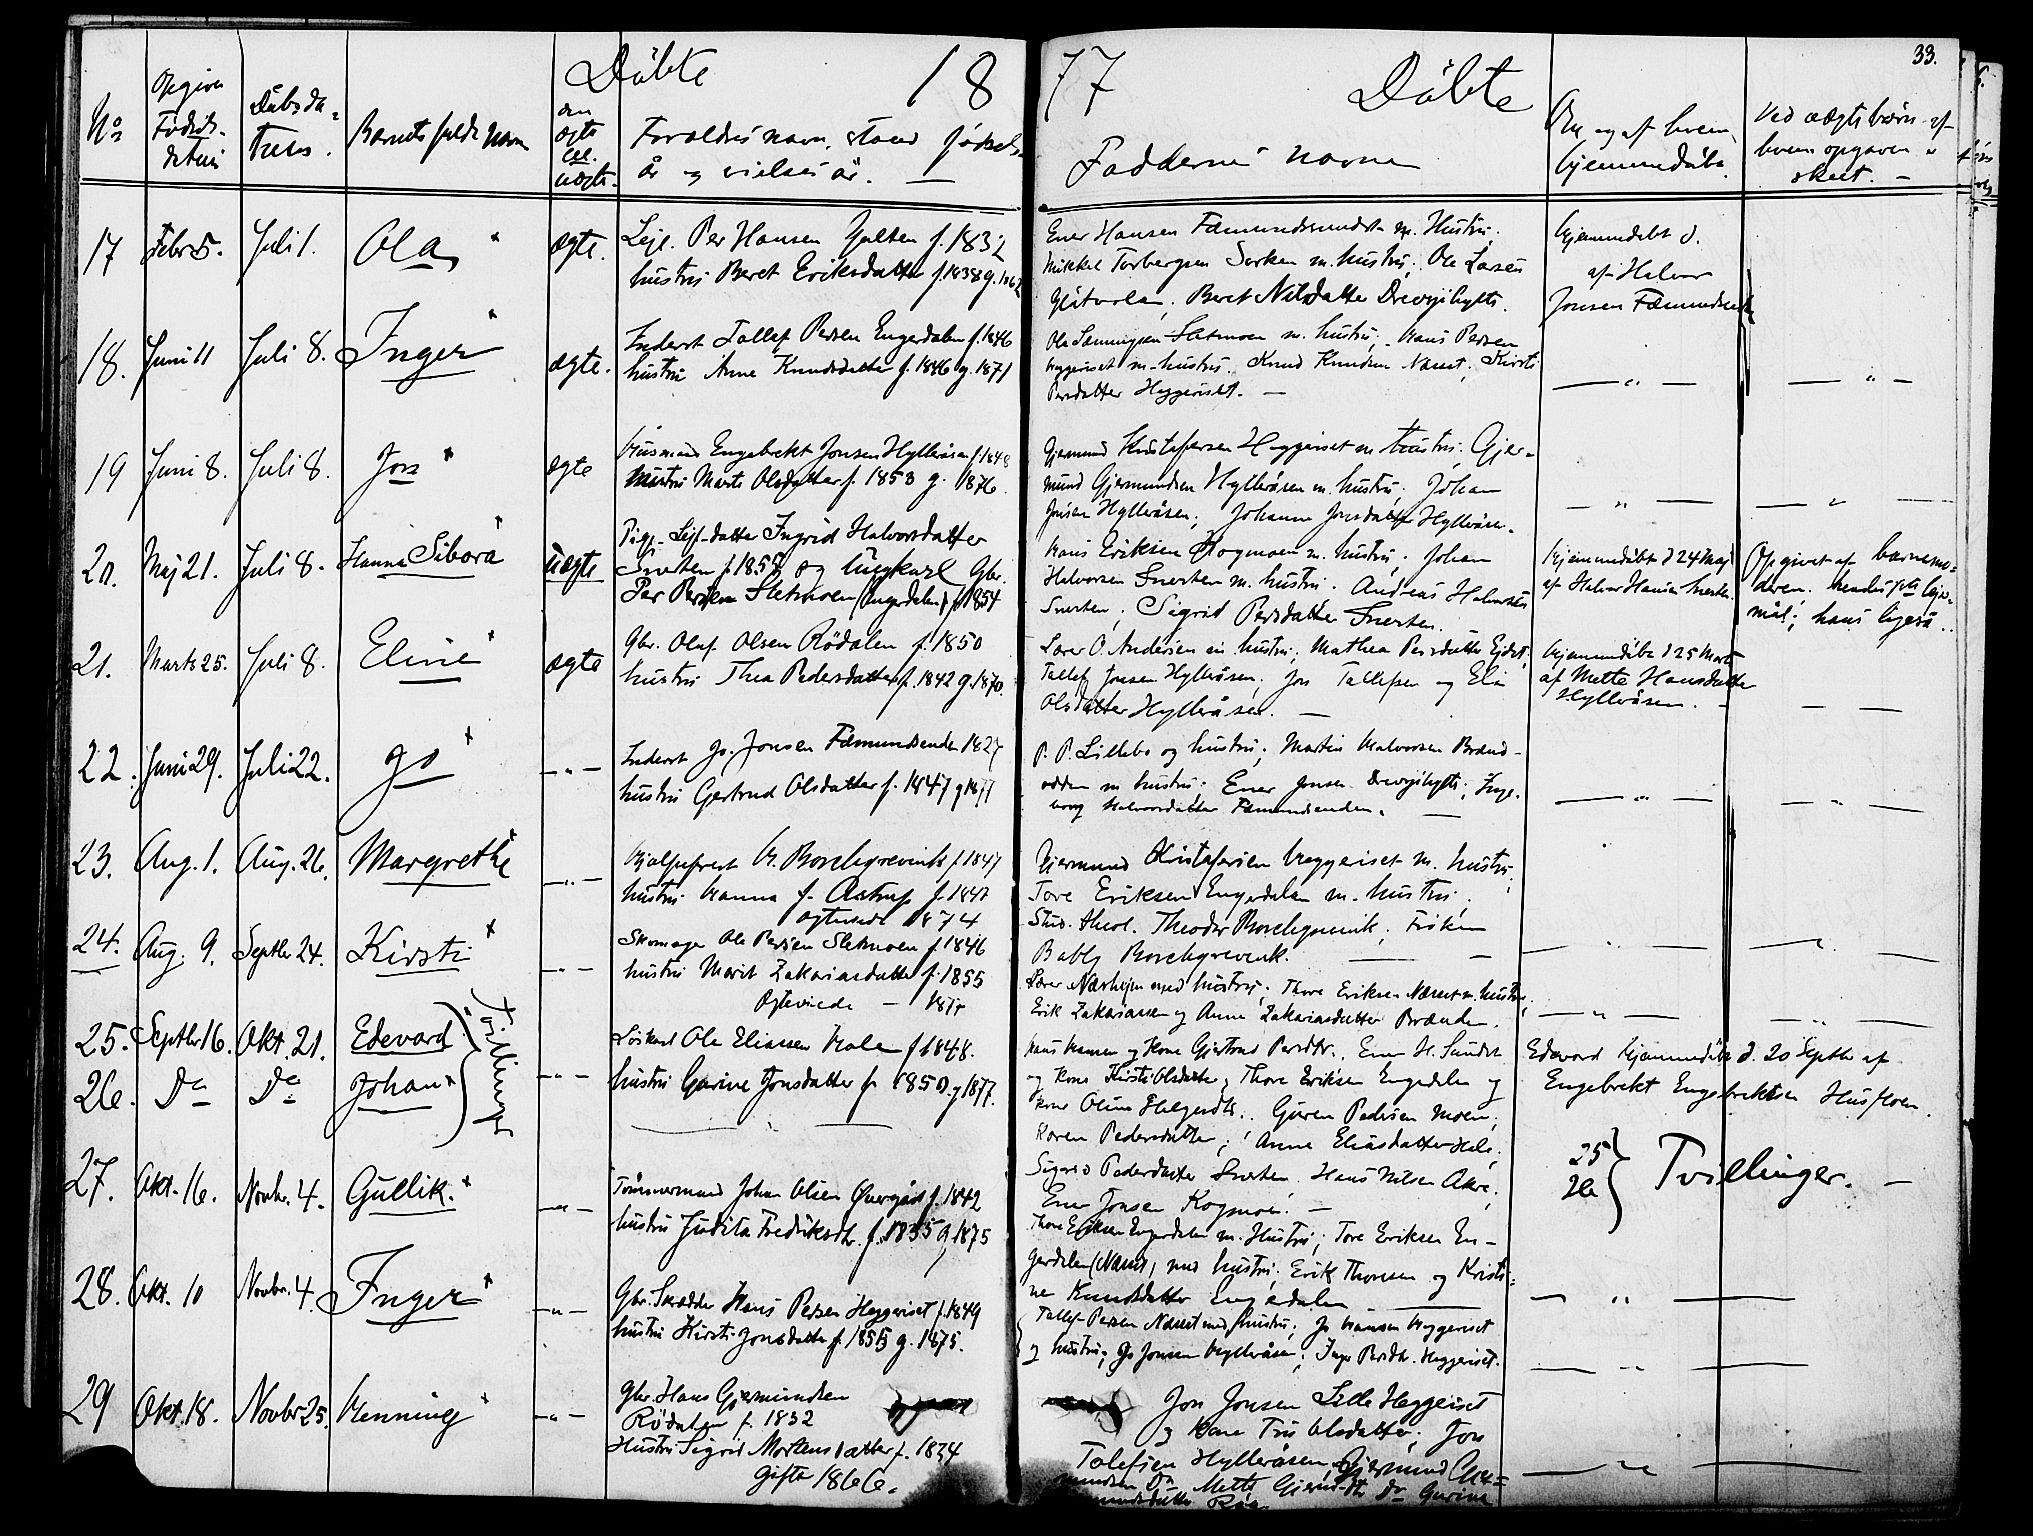 Döbte 18
77 Döbte
33.
No
Opgiven Födsels-datum
Döbsda-tum.
Barnets fulde navn
om ægte el. uægte.
Forældres navn, stand fødsels-
år og vielses år. —
Faddernes navne
Om og af hvem hjemmedöbt.
Ved uægte børn af hvem opgaven er skeet. —
17 Febr 5. Juli 1. Ola ægte.
Lejl. Per Hansen Galten f. 1832
hustru Beret Eriksdatter f. 1838 g. 1862
Ener Hansen Fæmundsundet m. Hustru;
Mikkel Torbergsen Sorken m. hustru; Ole Larsen
Glötvolen; Beret Nilsdatter Drevsjöhytte.
Hjemmedöbt d.
af Halvor
Jonsen Fæmundsundet
18. Juni 11 Juli 8. Inger ægte.
Inderst Tollef Persen Engerdalen f. 1846
hustru Anne Knudsdatter f. 1846 g. 1871
Ole Sæmingsen Sletmoen m. hustru; Hans Persen
Heggeriset m. hustru. Knud Knudsen Næset; Kirsti
Persdatter Heggeriset. —
19 Juni 8. Juli 8. Jon ægte
Husmand Engebrekt Jonsen Hylleråsen f. 1848
hustru Marte Olsdatter f. 1853 g. 1876.
Gjermund Kristofersen Heggeriset m hustru; Gjer-
mund Gjermundsen Hylleråsen m. hustru; Johan
Jonsen Hylleråsen; Johanne Jonsdatter Hylleråsen.
20. Maj 21. Juli 8. Hanna Sibora uægte
Pige. Lejl-datter Ingrid Halvorsdatter
Snerten f. 1857 og Ungkarl Gbr.
Per Persen Sletmoen (Engerdalen) f. 1854
Hans Eriksen Kogmoen m. hustru; Johan
Halvorsen Snerten m. hustru; Andreas Halvorsen
Snerten; Sigrid Persdatter Snerten.
Hjemmedöbt d 24 Maj
af Halvor Hansen Snerten.
Opgivet af barnemo-
deren. hendes 1ste lejer-
mål; hans ligeså..
21. Marts 25. Juli 8. Eline ægte
Gbr. Oluf Olsen Rödalen f. 1850
hustru Thea Pedersdatter f. 1842 g. 1870.
Lærer O. Andersen m. hustru; Mathea Persdatter Ejdet;
Tollef Jonsen Hylleråsen; Jon Tollefsen og Elin
Olsdatter Hylleråsen. —
Hjemmedöbt d 25 Marts
af Mette Hansdatter
Hylleråsen.
22. Juni 29. Juli 22. Jo — " —
Inderst Jo Jonsen Fæmundsenden 1827
hustru Gertrud Olsdatter f. 1847 g 1877
P. P. Lillebo og hustru; Martin Halvorsen Brænd-
odden m hustru; Ener Jonsen Drevsjöhytte; Inge-
borg Halvorsdatter Fæmundsenden. —
23. Aug. 1. Aug. 26. Margrethe — " —
Hjælpeprest H. Borchgrevink f. 1847
hustru Hanna f. Astrup f. 184
ægteviede 1874
Gjermund Kristofersen Heggeriset m. hustru;
Tore Eriksen Engerdalen m. hustru;
Stud. theol. Theodor Borchgrevink; Fröken
Bably Borchgrevink.
24. Aug. 9. Septbr 24. Kirsti — " —
Skomager Ole Persen Sletmoen f. 1846
hustru Marit Zakariasdatter f. 1855
ægteviede — 187
Lærer Nærhejm med hustru; Thore Eriksen Næset m. hustru;
Erik Zakariassen og Anne Zakariasdatter Brænden.
25. Septbr 16. Okt. 21. Edevard
26. Do Do Johan — " —
Tvillinger
Löskarl Ole Eliassen Hole f 1848.
hustru Gurine Jonsdatter f. 1850. g 1877.
Hans Hansen og Kone Gjertrud Persdtr., Ener H. Sundet
og Kone Kirsti Olsdatter, Thore Eriksen Engerdalen og
Kone Oline Helgesdtr.. Guren Pedersen Moen;
Karen Pedersdatter; Anne Eliasdatter Hole;
Edevard hjemmedöbt d. 20 Septbr af
Engebrekt Engebrektsen Husfloen.
25
26 } Tvillinger. —
27. Okt. 16. Novbr. 4. Gullik. — " —
Tömmermand Johan Olsen Övergård f. 1842
hustru Judita Fredriksdtr. f. 1835 g. 1875
Sigrid Pedersdatter Snerten; Hans Nilsen Åkre;
Ener Jonsen Kogmoen. —
Thore Eriksen Engerdalen m. Hustru; Tore Eriksen En-
gerdalen (Næset) med hustru; Erik Thoresen og Kristi-
ne Knudsdatter Engerdalen.
28. Okt. 10 Novbr. 4. Inger — " —
Gbr. Skrædder Hans Persen Heggeriset f. 1849
hustru Kirsti Jonsdatter f. 1855 g. 1875.
Tollef Persen Næset med hustru; Jo Hansen Heggeriset
og hustru; Jo Jonsen Hylleråsen; Inger Persdtr. Heggeriset.
29 Okt. 18. Novbr 25. Henning — " —
Gbr. Hans Gjermundsen
Rödalen f. 1832
Hustru Sigrid Mortensdatter f. 1834
Gifte 1866.
Jon Jonsen Lille Heggeriset
og Kone Tru Olsdatter; Jon
Tolefsen Hylleråsen; Gjermund
Mette Gjermdtr Do Gurine